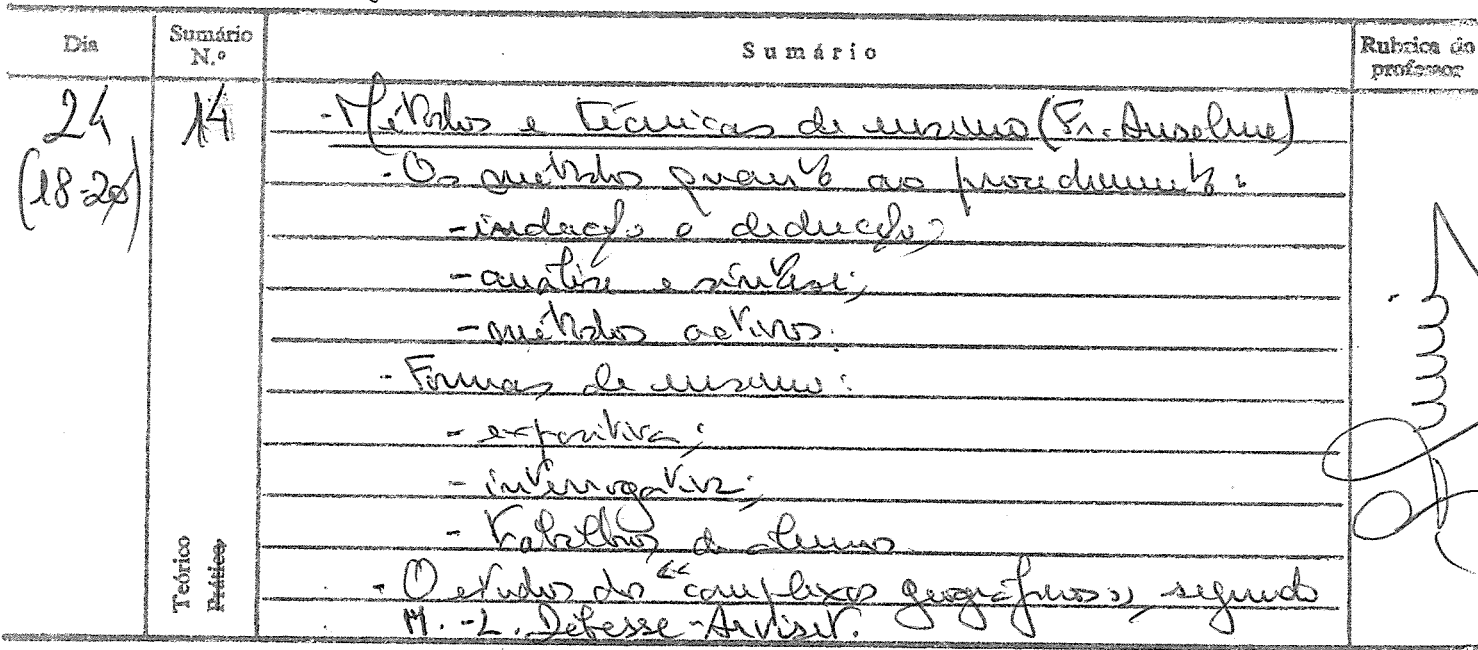 Dia
Sumário N.º
Sumário
Rubrica do professor
24 (18-20)
14
- Métodos e técnicas de ensino (Fr. Anselme)
- Os métodos quanto ao procedimento:
- indução e dedução;
- análise e síntese;
- métodos activos.
- Formas de ensino:
- expositiva;
- interrogativa;
- trabalhos do aluno.
- O estudos dos "complexos geográficos", segundo
M.-L. Debesse-Arviset.
Teórico
Prático